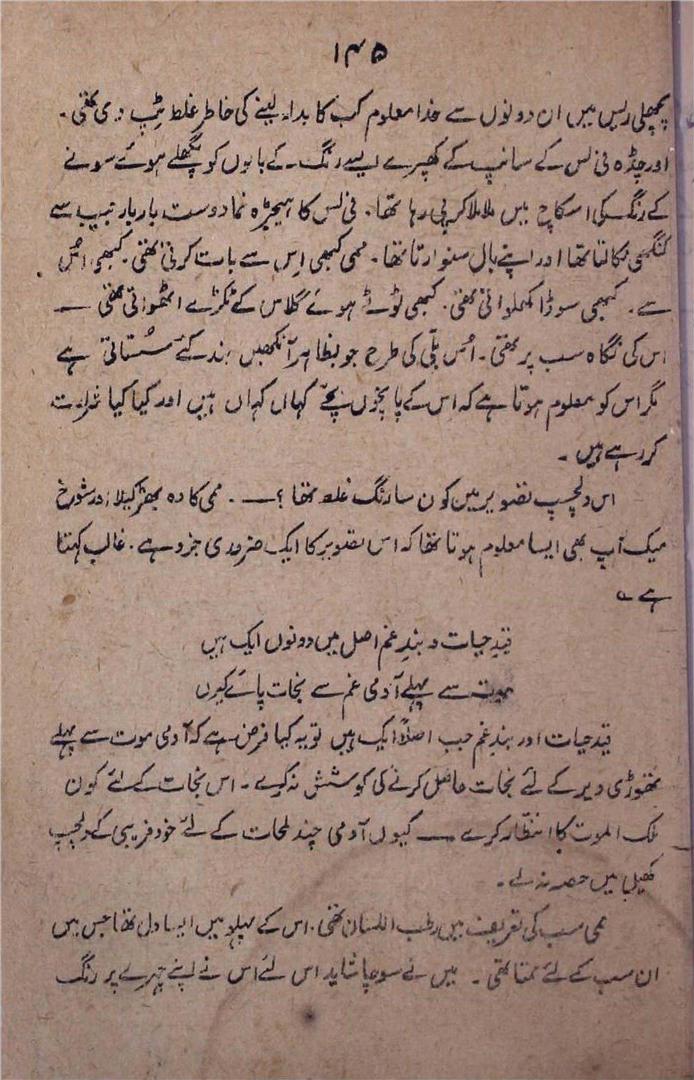 ۱۴۵
پچھلی ریس میں ان دونوں سے خدا معلوم کب کا بدلہ لینے کی خاطر غلط ٹپ دی تھی۔
اور چڈہ فی لس کے سانپ کے کھپرے ایسے رنگ کے بالوں کو پگھلے ہوئے سونے
کے رنگ کی اسکاچ میں ملا ملا کر پی رہا تھا۔ فی لس کا ہیجڑہ نما دوست بار بار جیب سے
کنگھی نکالتا تھا اور اپنے بال سنوارتا تھا۔ ممی کبھی اِس سے بات کرتی تھی۔ کبھی اُس
سے۔ کبھی سوڈا کھلواتی تھی۔ کبھی ٹوٹے ہوئے گلاس کے ٹکڑے اٹھواتی تھی ——
اس کی نگاہ سب پر تھی۔ اُس بلّی کی طرح جو بظاہر آنکھیں بند کئے سُستاتی ہے
مگر اس کو معلوم ہوتا ہے کہ اس کے پانچوں بچّے کہاں کہاں ہیں اور کیا کیا شرارت
کر رہے ہیں۔
اس دلچسپ تصویر میں کون سا رنگ غلط تھا؟ ——۔ ممی کا وہ بھڑکیلا اور شوخ
میک اَپ بھی ایسا معلوم ہوتا تھا کہ اس تصویر کا ایک ضروری جزو ہے۔ غالب کہتا
ہے ؎
قیدِ حیات و بندِ غم اصل میں دونوں ایک ہیں
موت سے پہلے آدمی غم سے نجات پائے کیوں
قیدِ حیات اور بندِ غم جب اصلاً ایک ہیں تو یہ کیا فرض ہے کہ آدمی موت سے پہلے
تھوڑی دیر کے لئے نجات حاصل کرنے کی کوشش نہ کرے۔ اس نجات کے لئے کون
ملک الموت کا انتظار کرے —— کیوں آدمی چند لمحات کے لئے خود فریبی کے دلچسپ
کھیل میں حصہ نہ لے۔
ممی سب کی تعریف میں رطب اللسان تھی۔ اس کے پہلو میں ایسا دل تھا جس میں
ان سب کے لئے ممتا تھی۔ میں نے سوچا شاید اس لئے اس نے اپنے چہرے پر رنگ